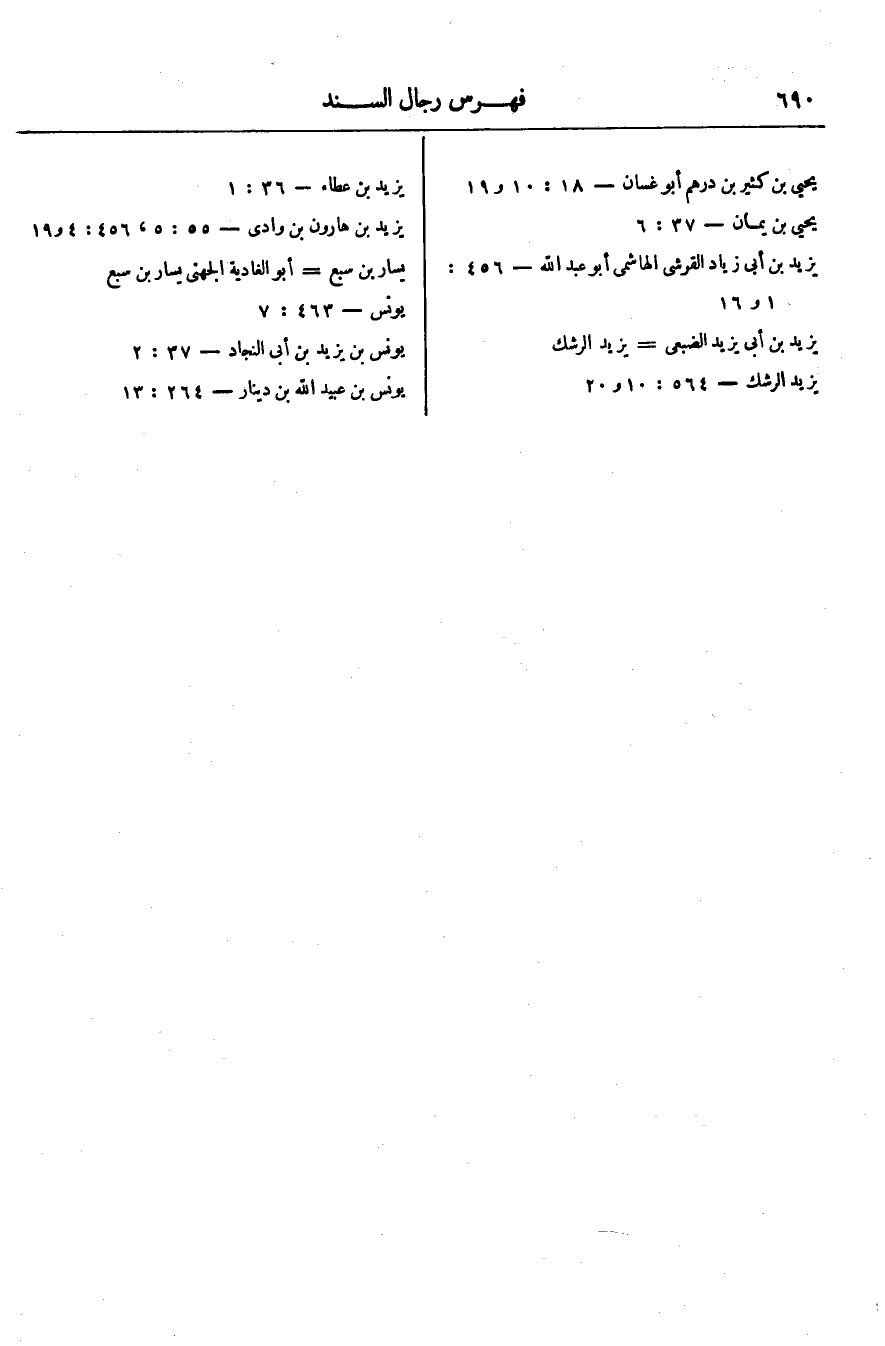 ٦٩٠
فهـــرس رجال الســـند
يحيى بن كثير بن درهم أبو غسان — ١٨ : ١٠ و ١٩
يحيى بن يمـان — ٣٧ : ٦
يزيد بن أبى زياد القرشى الهاشمى أبو عبد الله — ٤٥٦ :
١ و ١٦
يزيد بن أبى يزيد الضبعى = يزيد الرشك
يزيد الرشك — ٥٦٤ : ١٠ و ٢٠
يزيد بن عطاء — ٣٦ : ١
يزيد بن هارون بن وادى — ٥٥ : ٥ ، ٤٥٦ : ٤ و ١٩
يسار بن سبع = أبو الغادية الجهنى يسار بن سبع
يونس — ٤٦٣ : ٧
يونس بن يزيد بن أبى النجاد — ٣٧ : ٢
يونس بن عبيد الله بن دينار — ٢٦٤ : ١٣